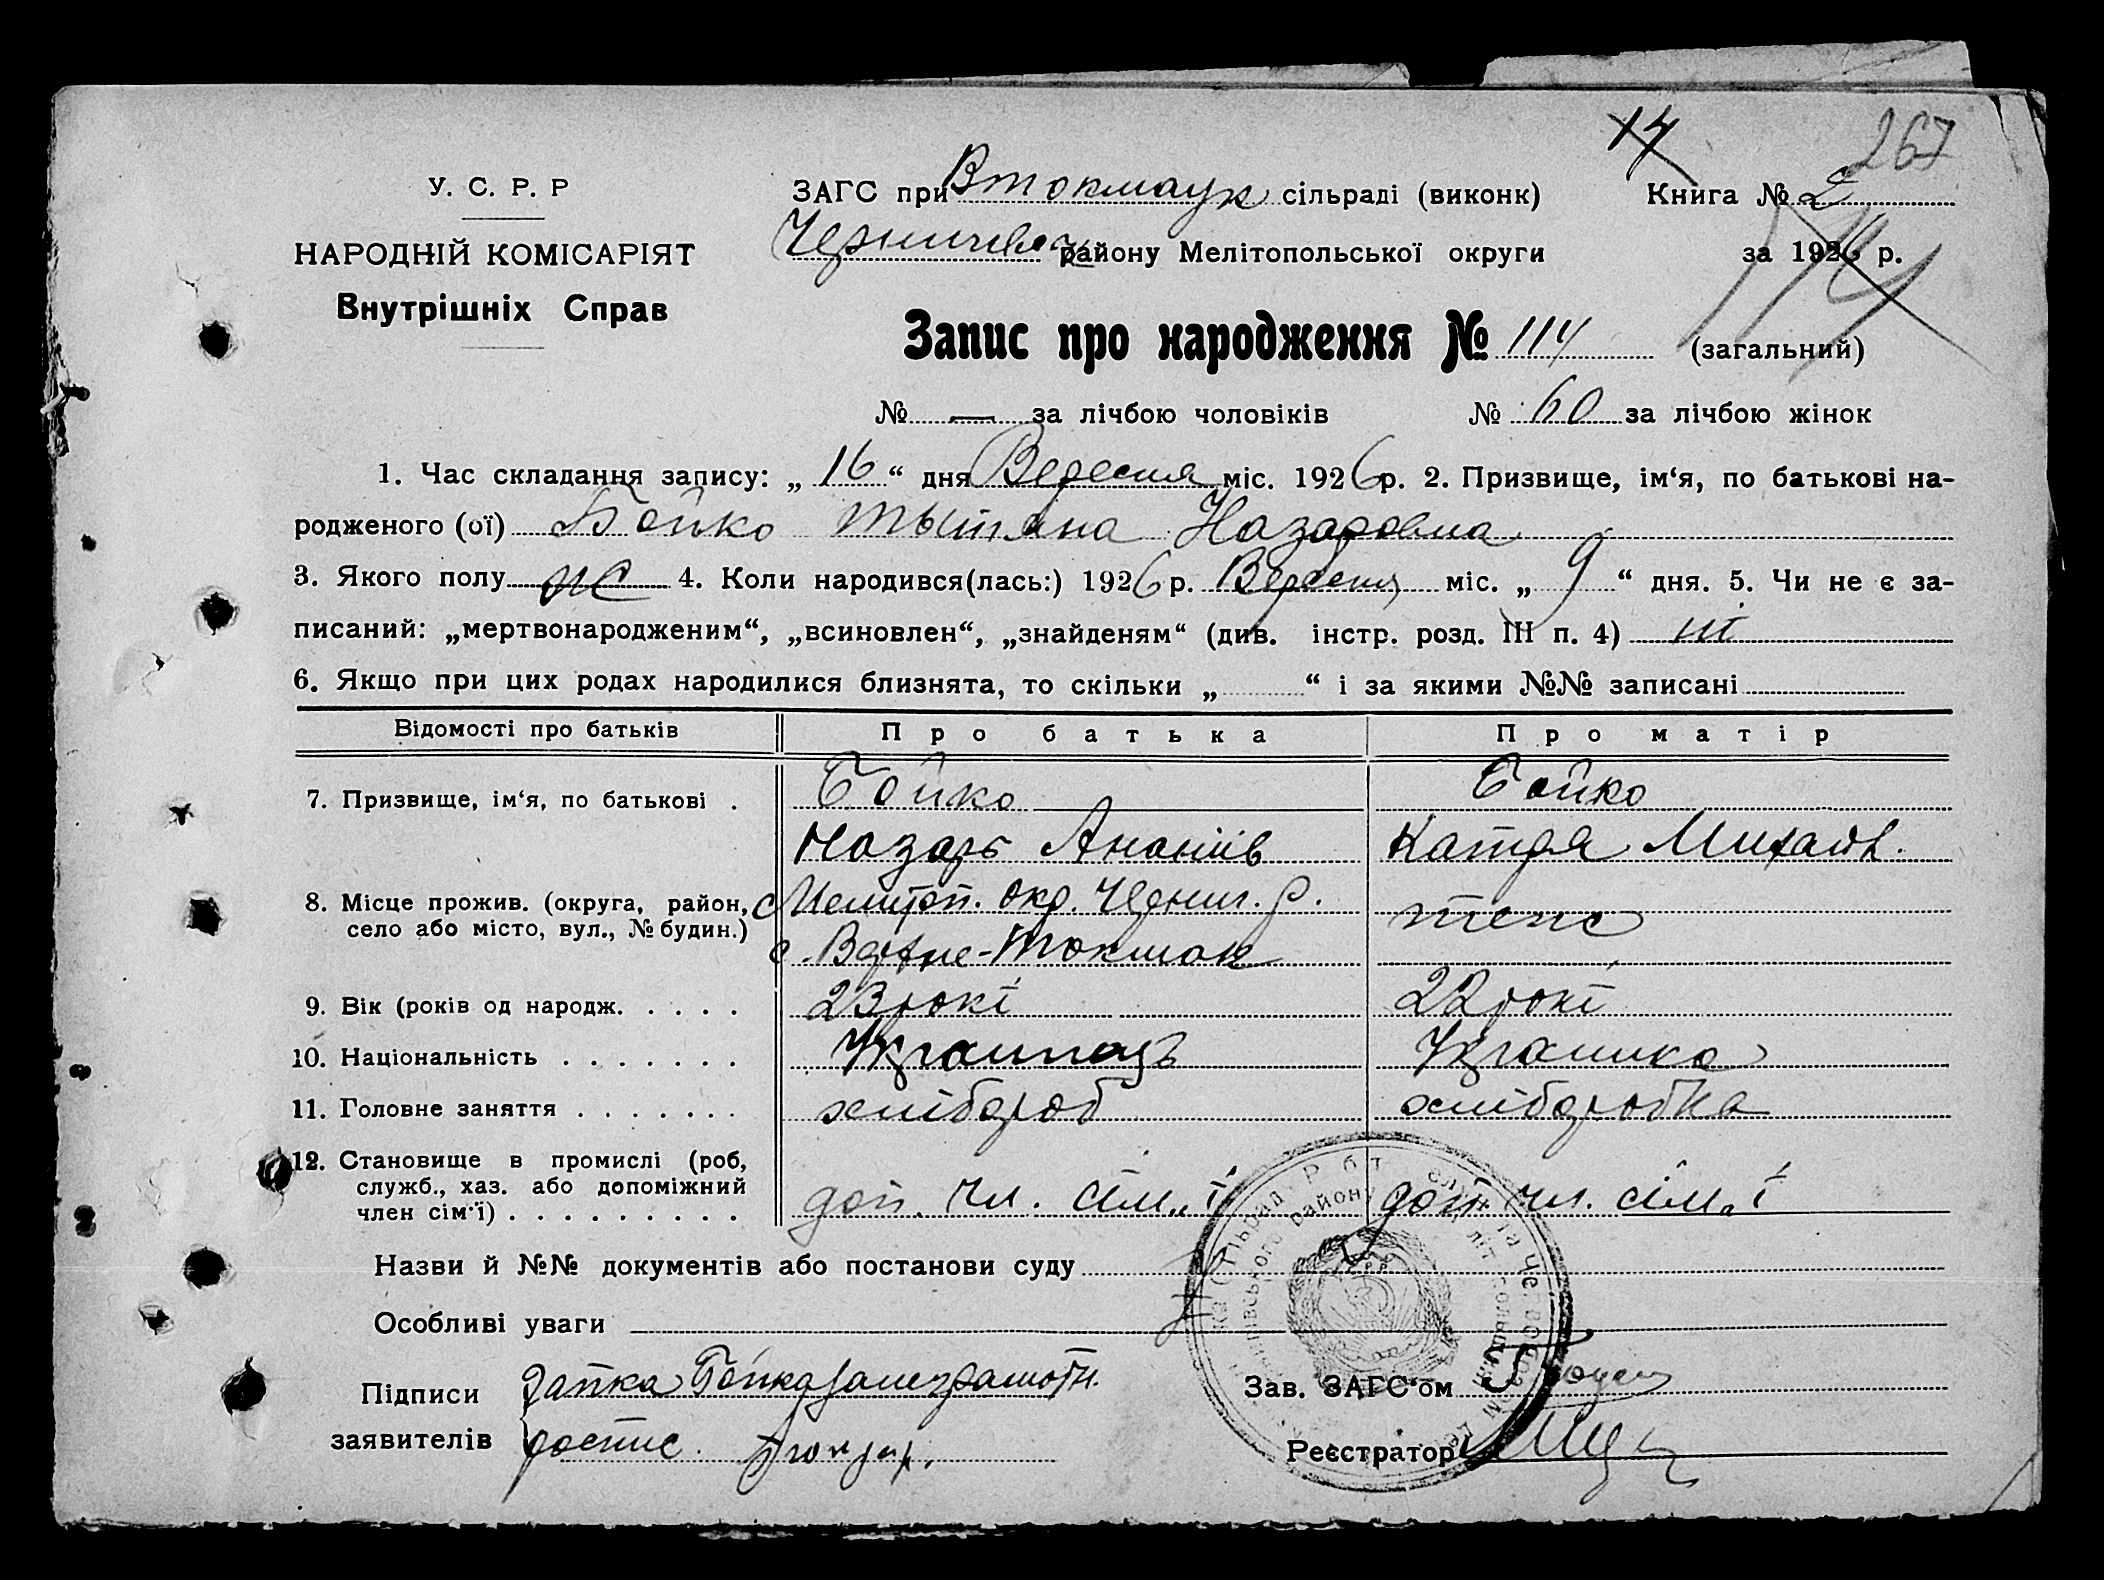 14 267
У. С. Р. Р ЗАГС при Втокмацк сільраді (виконк) Книга № 2
НАРОДНІЙ КОМІСАРІЯТ район у Мелітопольської округи за 1926 р.
Внутрішніх Справ 114
Запис про народження № 114 (загальний)
№ — за лічбою чоловіків № 60 за лічбою жінок
1. Час складання запису: „ 16 “ дня Вересня міс. 1926 р. 2. Призвище, ім‘я, по батькові на-
родженого (ої) Бойко Тытяна Назаровна
3. Якого полу ж 4. Коли народився(лась:) 1926 р. Вересня міс. „ 9 “ дня. 5. Чи не є за-
писаний: „мертвонародженим“, „всиновлен“, „знайденям“ (див. інстр. розд. III п. 4) ні
6. Якщо при цих родах народилися близнята, то скільки „ “ і за якими №№ записані
Відомості про батьків Про батька Про матір
7. Призвище, ім‘я, по батькові . Бойко Бойко
Назарь Ананіїв Катря Михайл.
8. Місце прожив. (округа, район, Мелітоп. окр. Черниг. р. теж
село або місто, вул., № будин.) с. Верхне-Токмак
9. Вік (років од народж. . . . . 23 рокі 22 рокі
10. Національність . . . . . . . Українець Українка
11. Головне заняття . . . . . . . хлібороб хліборобка
12. Становище в промислі (роб,
служб., хаз. або допоміжний доп. чл. сім„ї доп. чл. сім„ї
член сім‘ї) . . . . . . . . .
Назви й №№ документів або постанови суду
Особливі уваги
Підписи Бойка Зав. ЗАГС‘ом
заявителів роспис. Реєстратор